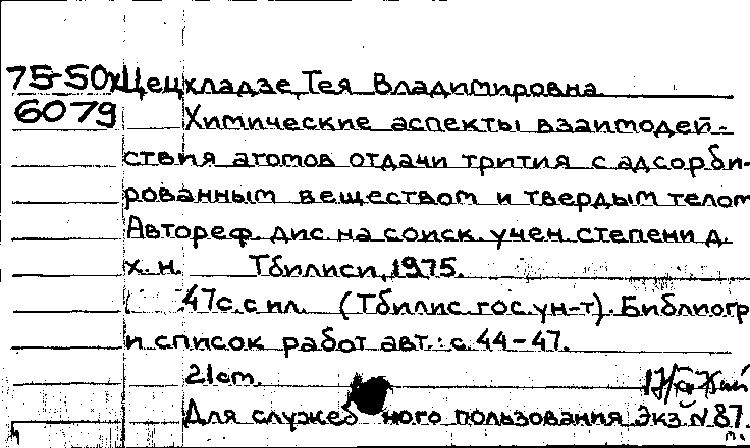 75-50х Цецхладзе, Тея Владимировна
6079 Химические аспекты взаимодей-
ствия атомов отдачи трития с адсорби-
рованным веществом и твердым телом
Автореф. дис. на соиск. учен. степени д.
х. н. Тбилиси, 1975.
47с. с ил. (Тбилис. гос. ун-т). Библиогр
и список работ авт.: с. 44-47.
21 cm.
Для служебного пользования Экз N 87